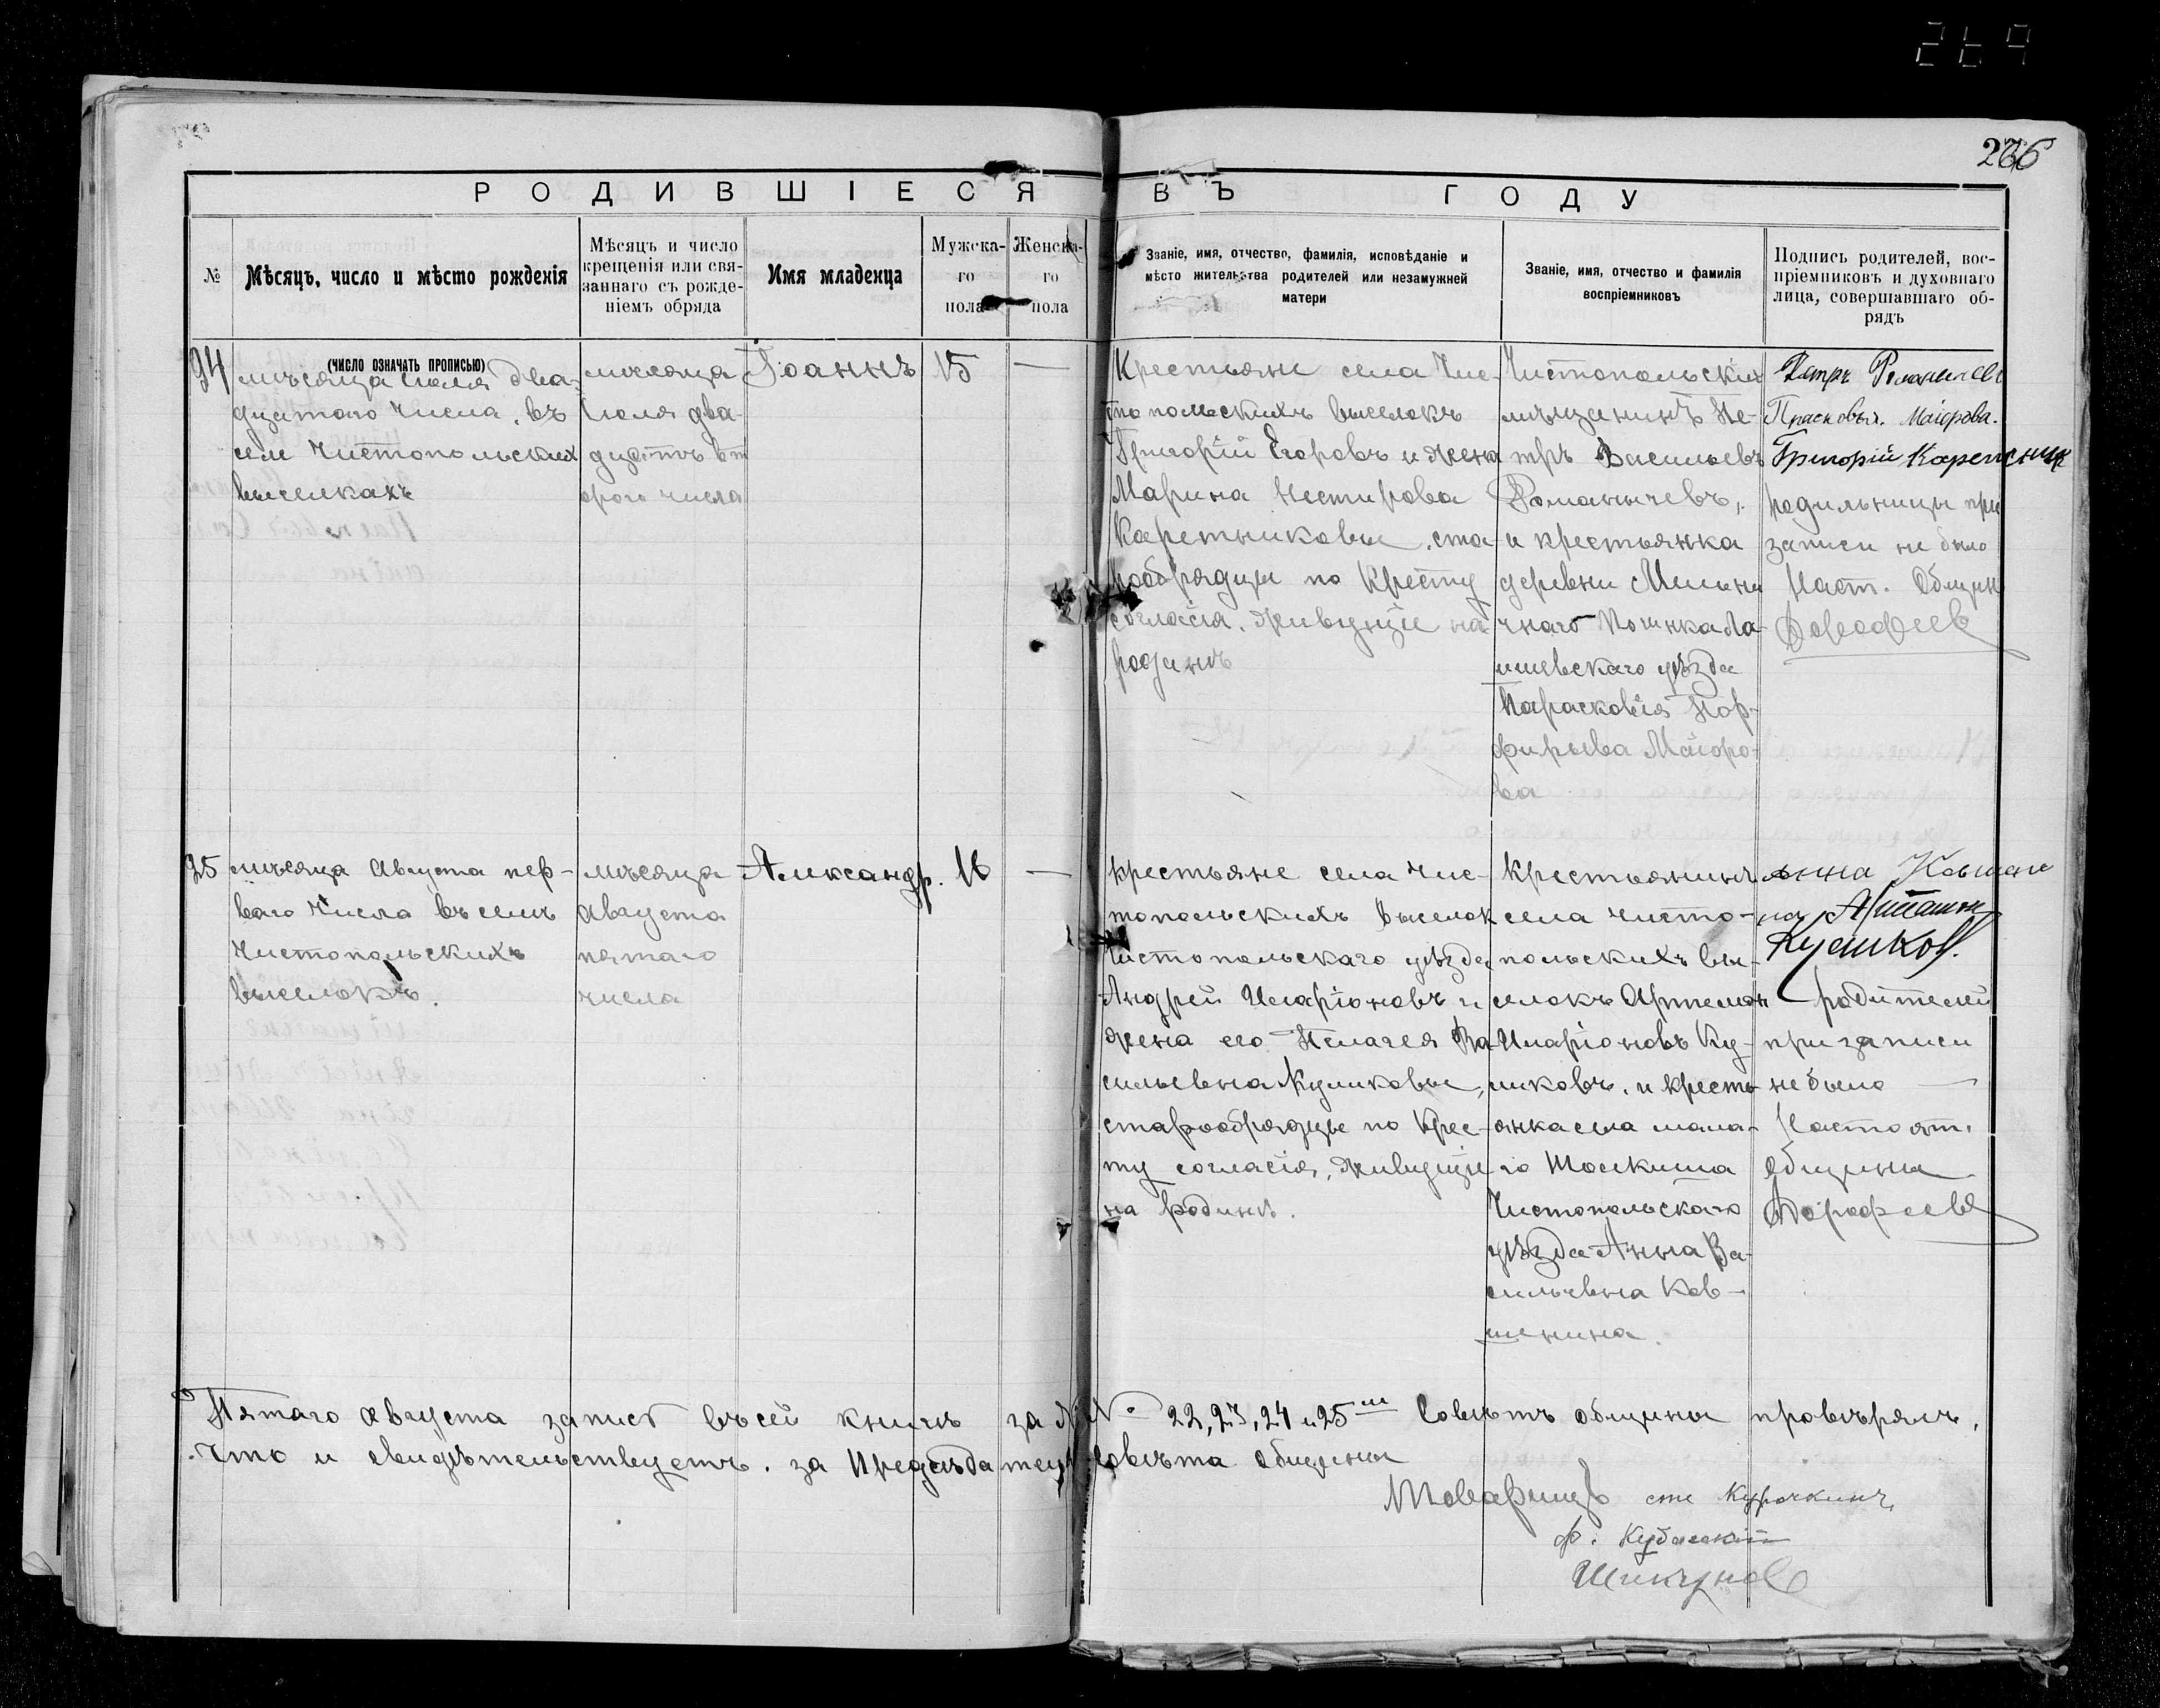 276
РОДИВШІЕСЯ ВЪ ГОДУ
№
Мѣсяцъ, число и мѣсто рожденія
Мѣсяцъ и число
крещенія или свя-
заннаго съ рожде-
ніемъ обряда
Имя младенца
Мужска-
го
пола
Женска-
го
пола
Званіе, имя, отчество, фамилія, исповѣданіе и
мѣсто жительства родителей или незамужней
матери
Званіе, имя, отчество и фамилія
воспріемниковъ
Подпись родителей, вос-
пріемниковъ и духовнаго
лица, совершавшаго об-
рядъ
(ЧИСЛО ОЗНАЧАТЬ ПРОПИСЬЮ)
24
мѣсяца Іюля два-
дцатаго числа, въ
селѣ Чистопольских
выселкахъ
мѣсяца
Іюля два-
дцать вт
орого числа
Іоаннъ
15
—
Крестьяне села Чис-
топольскихъ выселокъ
Григорій Егоровъ и жена
Марина Нестирова
Каретниковы, ста-
рообрядцы по Кресту
согласія, живущіе на
родинѣ
Чистопольскій
мѣщанинъ Пе-
тръ Васильевъ
Романычевъ,
и крестьянка
деревни Мельни
чнаго Починка Ла-
ишевскаго уѣзда
Парасковія Пор-
фирьева Маіоро-
ва
Прасковья Маіорова.
Григорій
родильницы при
записи не было
Наст. Общин
Дорофеев
25
мѣсяца Августа пер-
ваго числа въ селѣ
Чистопольскихъ
выселокъ.
мѣсяца
Августа
пятаго
числа
Александр.
16
—
крестьяне села Чис-
топольскихъ Выселок
Чистопольскаго уѣзда
Андрей Иларіоновъ и
жена его Пелагея Ва
сильевна Куликовы,
старообрядцы по Крес-
ту согласія, живущіе
на родинѣ.
Крестьянинъ
села Чисто-
польскихъ вы-
селокъ Артемон
Иларіоновъ Ку-
ликовъ, и кресть
янка села мала-
го Толкиша
Чистопольскаго
уѣзда Анна Ва-
сильевна Ков-
шенина.
Анна
Куликов.
родителей
при записи
не было —
Настоят.
общины
Дорофеевъ
Пятаго Августа запись въ сей книгѣ за № 22, 23, 24 и 25 м Совѣтъ общины провѣрялъ,
что и свидѣтельствуетъ. за Предсѣдателя совѣта общины
Товарищъ Курочкинъ
Ф. Кубасскій
Шикунов